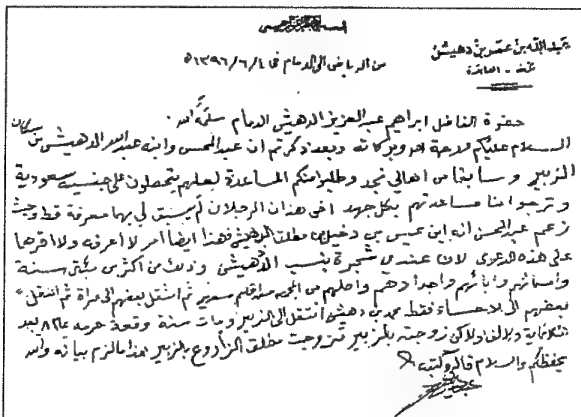 بسم الله الرحمن الرحيم
عبدالله بن عمر بن دهيش
مكة - العابدية
من الرياض الى الدمام في ١٣٩٦/٦/٤ه
حضرة الفاضل ابراهيم عبدالعزيز الدهيش الدمام سلمه الله .
السلام عليكم ورحمة الله وبركاته وبعد ذكرتم ان عبدالمحسن وابنه عبدالله الدهيشي من سكان
الزبير وسابقا من اهالي نجد وطلبوا منكم المساعدة لعلهم يتحصلون على جنسيه سعودية
وترجوا منا مساعدتهم بكل جهد اخي هذان الرجلان لم يسبق لي بها معرفة قط وحيث
زعم عبدالمحسن انه ابن عيسى بن دخيل بن مطلق الدهيش فهذا ايضا امر لا اعرفه ولا اقرها
على هذه الدعوى لان عندي شجرة بنسب الدهيشي وذلك من اكثر من مئتي سنة
واسمائهم وابائهم واجدادهم واصلهم من اقليم سدير ثم انتقل بعضهم الى مراة ثم انتقل
بعضهم الى الاحساء فقط محمد بن دهيش انتقل الى الزبير ومات سنة وقعة حرمه عام ٨٢ بعد
ولاكن زوجته بالزبير تزوجت مطلق بالزبير هذا مالزم بيانه والله
يحفظكم والسلام